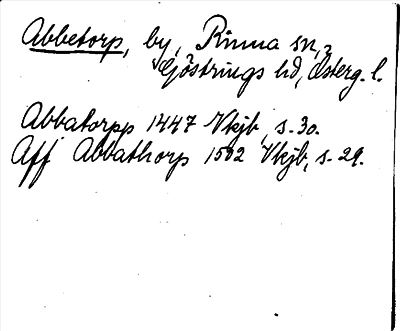 Abbetorp, by, Rinna sn,
Göstrings hd, Österg. l.
Abbatorpp 1447 Vkjb, s. 30.
Aff Abbathorp 1502 Vkjb, s. 29.